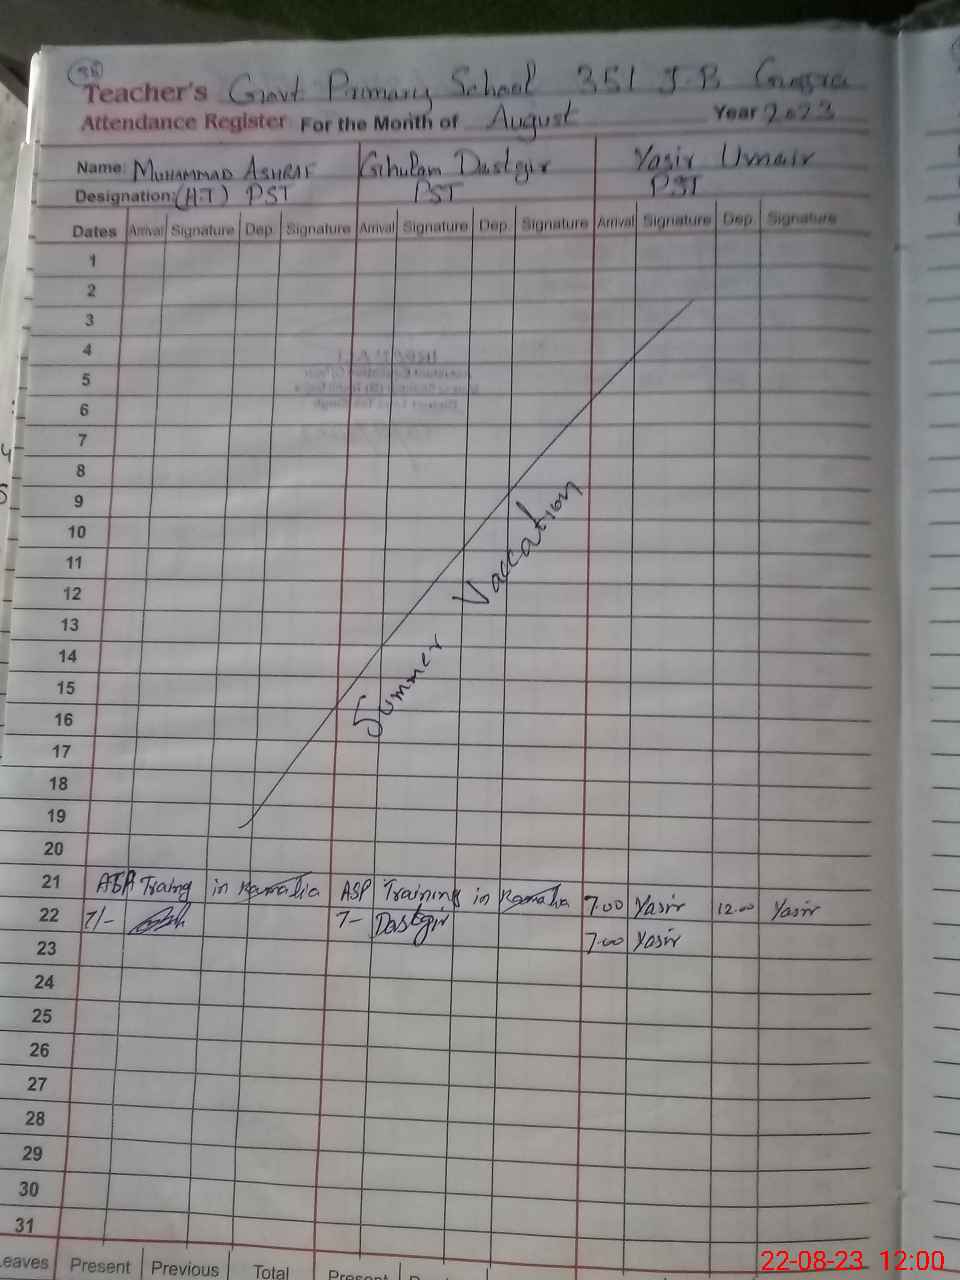 38
Teacher's Govt Primary School 351 J.B
Attendance Register For the Month of August Year 2023
Name: MUHAMMAD ASHRAF Ghulam Dastgir Yasir Umair
Designation: (H.T) PST PST PST
Dates Arrival Signature Dep. Signature Arrival Signature Dep. Signature Arrival Signature Dep. Signature
1
2
3
4
5
6
7
8
9
10
11
12
13
14
15
16
17
18
19
20
Summer Vaccation
21 Traing in Kamalia ASP Training in Kamalia 7.00 Yasir 12.00 Yasir
22 7/- 7- Dastgir 7.00 Yasir
23
24
25
26
27
28
29
30
31
Leaves Present Previous Total Present
22-08-23 12:00